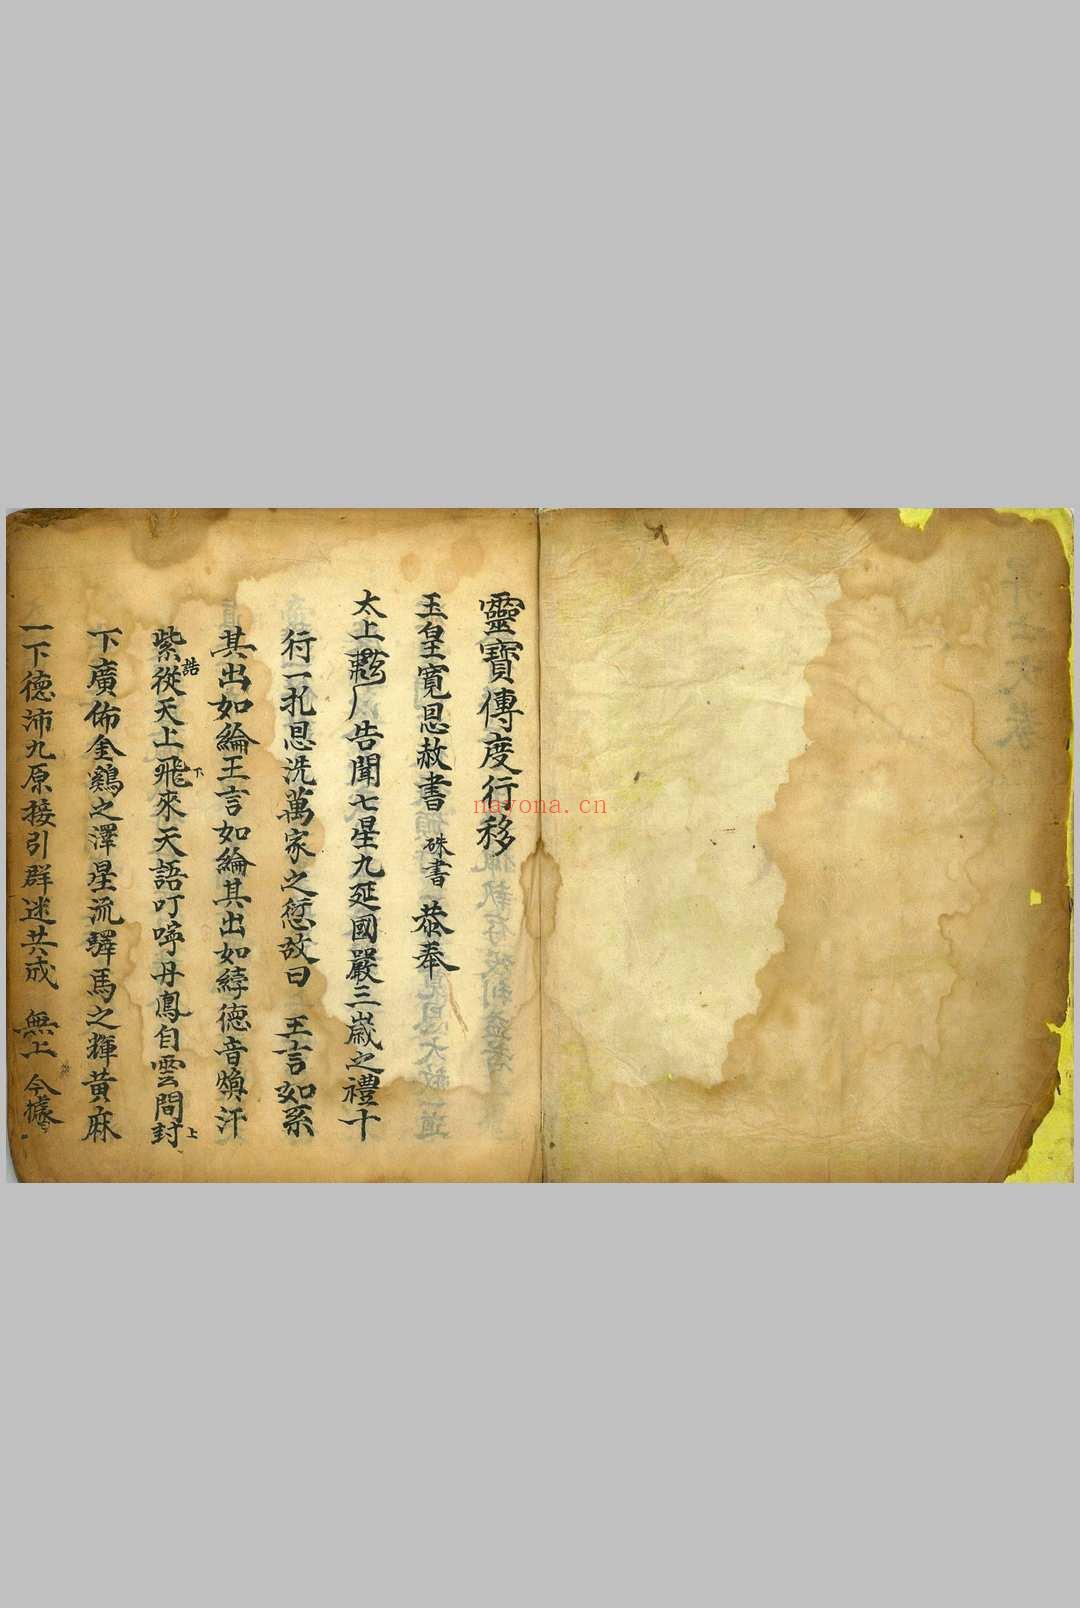 靈寶傳度行移
玉皇寬恩赦書 硃書 恭奉
太上 厂告聞七星九延國嚴三歲之禮十
行一扎恩洗萬家之愆故曰 王言如糸
其出如綸王言如綸其出如綍德音煥汗
紫誥從天上飛下來天語叮嚀丹鳳自雲間封上
下廣佈金鷄之澤星流驛馬之輝黃麻
一下德沛九原接引群迷共成 無上 今據
nayona.cn